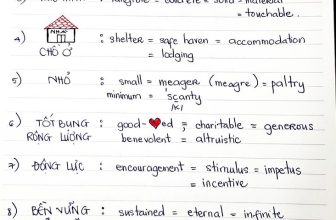 = touchable.
4) NHÀ : shelter = safe haven = accommodation
CHỖ Ở = lodging
5) NHỎ : small = meager (meagre) = paltry
minimum = scanty
/k/
6) TỐT BỤNG : good-❤ed = charitable = generous
RỘNG LƯỢNG benevolent = altruistic
7) ĐỘNG LỰC : encouragement = stimulus = impetus
= incentive
8) BỀN VỮNG : sustained = eternal = infinite